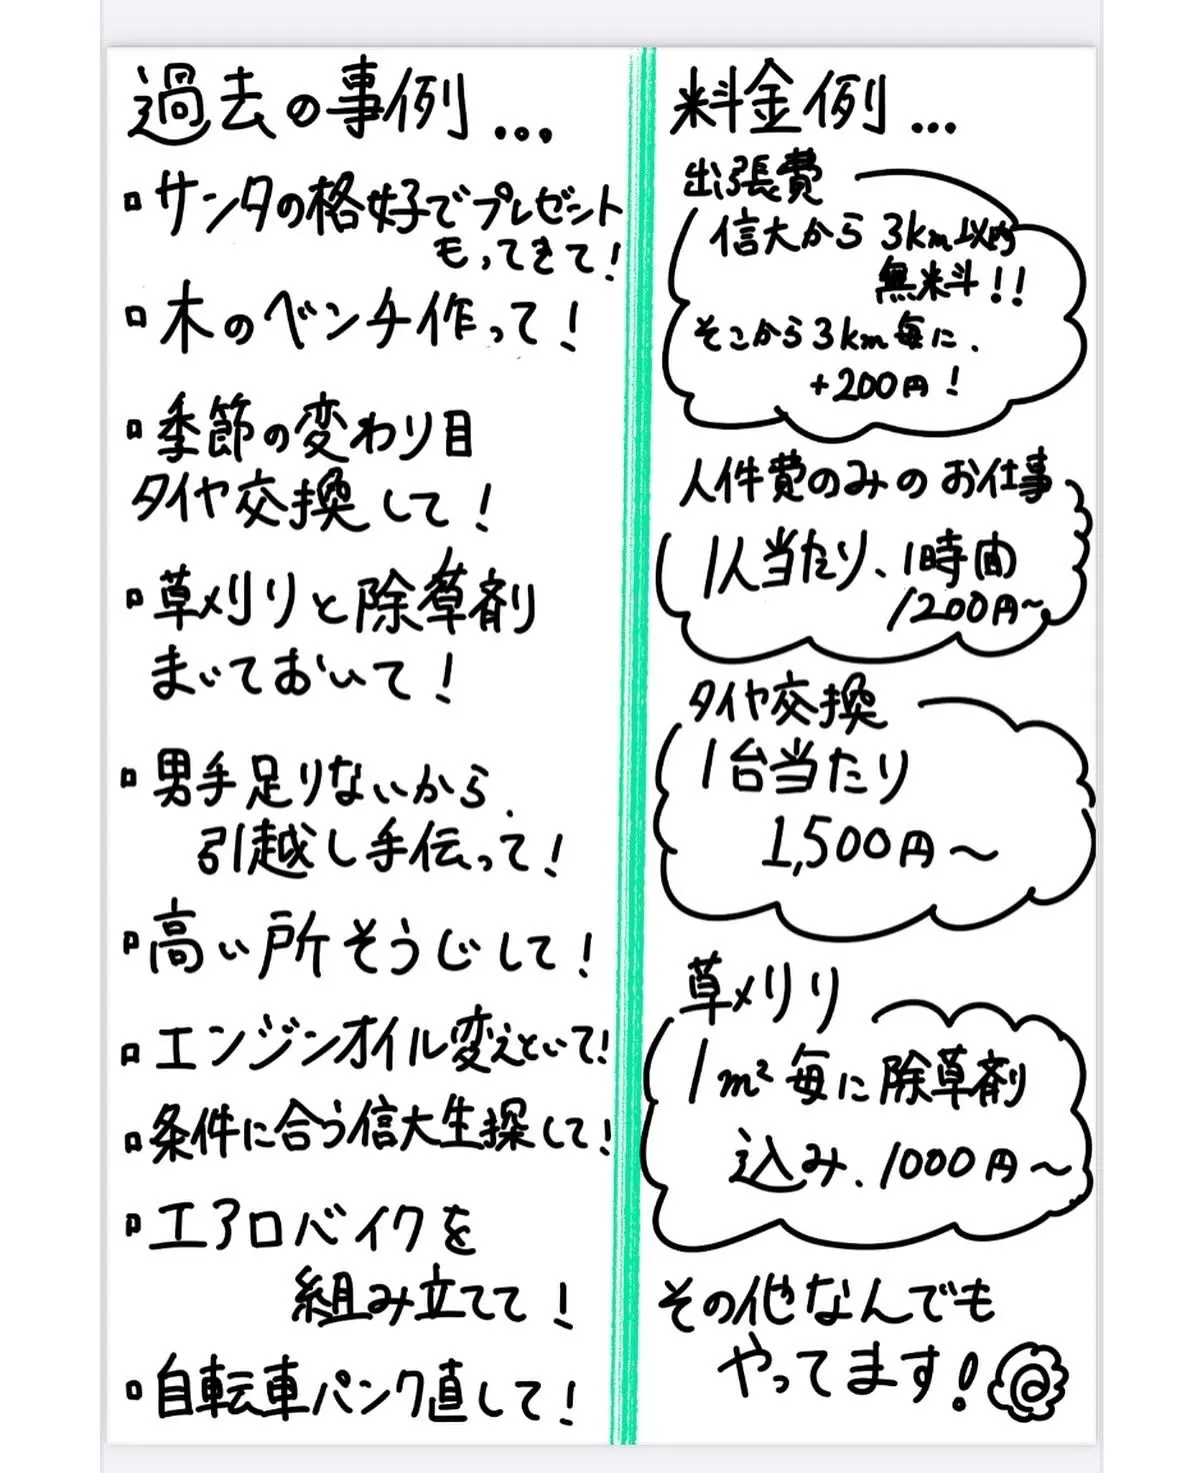 過去の事例...
▫サンタの格好でプレゼント
もってきて!
▫木のベンチ作って!
▫季節の変わり目
タイヤ交換して!
▫草刈りと除草剤
まいておいて!
▫男手足りないから、
引越し手伝って!
▫高い所そうじして!
▫エンジンオイル変えといて!
▫条件に合う信大生探して!
▫エアロバイクを
組み立てて!
▫自転車パンク直して!
料金例...
出張費
信大から3km以内
無料!!
そこから3km毎に、
+200円!
人件費のみのお仕事
1人当たり、1時間
1200円~
タイヤ交換
1台当たり
1,500円~
草刈り
1m²毎に除草剤
込み、1000円~
その他なんでも
やってます!